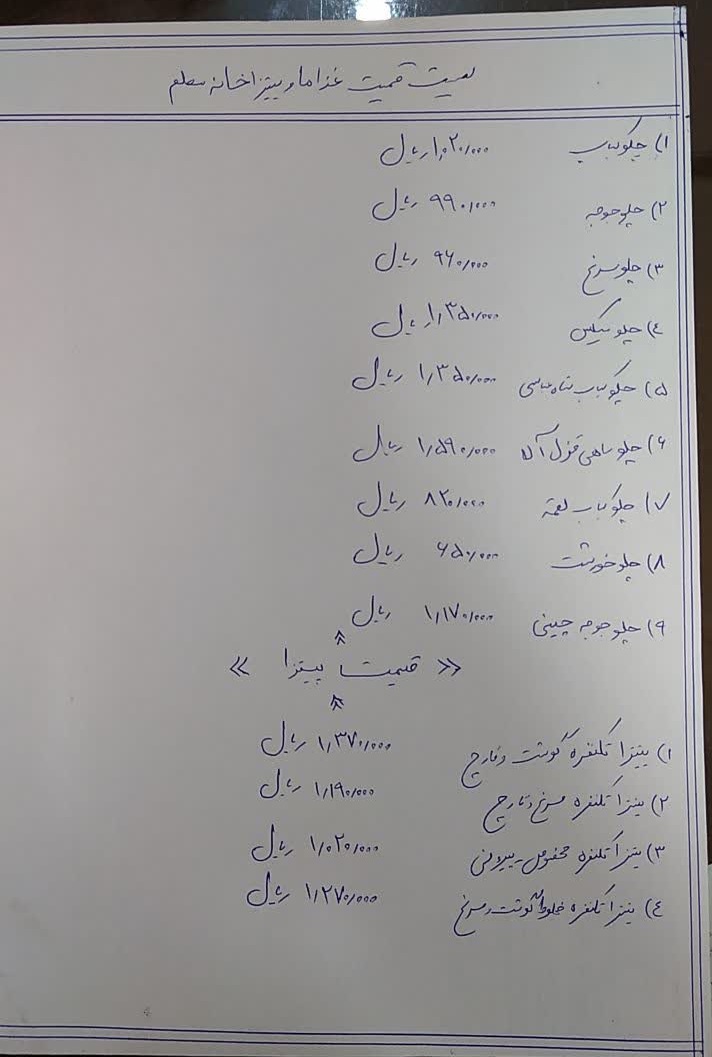 لیست قیمت غذاها و پیتزا خانه معلم
۱) چلوکباب ۱٫۰۲۰٫۰۰۰ ریال
۲) چلوجوجه ۹۹۰٫۰۰۰ ریال
۳) چلومرغ ۹۶۰٫۰۰۰ ریال
٤) چلو میکس ۱٫۳۵۰٫۰۰۰ ریال
۵) چلوکباب شاه عباسی ۱٫۳۵۰٫۰۰۰ ریال
۶) چلو ماهی قزل آلا ۱٫۵۹۰٫۰۰۰ ریال
۷) چلو کباب لقمه ۸۲۰٫۰۰۰ ریال
۸) چلوخورشت ۶۵۰٫۰۰۰ ریال
۹) چلو جوجه چینی ۱٫۱۷۰٫۰۰۰ ریال
« قیمت پیتزا »
۱) پیتزا تکنفره گوشت و قارچ ۱٫۳۷۰٫۰۰۰ ریال
۲) پیتزا تکنفره مرغ و قارچ ۱٫۱۹۰٫۰۰۰ ریال
۳) پیتزا تکنفره مخصوص پپرونی ۱٫۰۲۰٫۰۰۰ ریال
٤) پیتزا تکنفره مخلوط گوشت و مرغ ۱٫۲۷۰٫۰۰۰ ریال